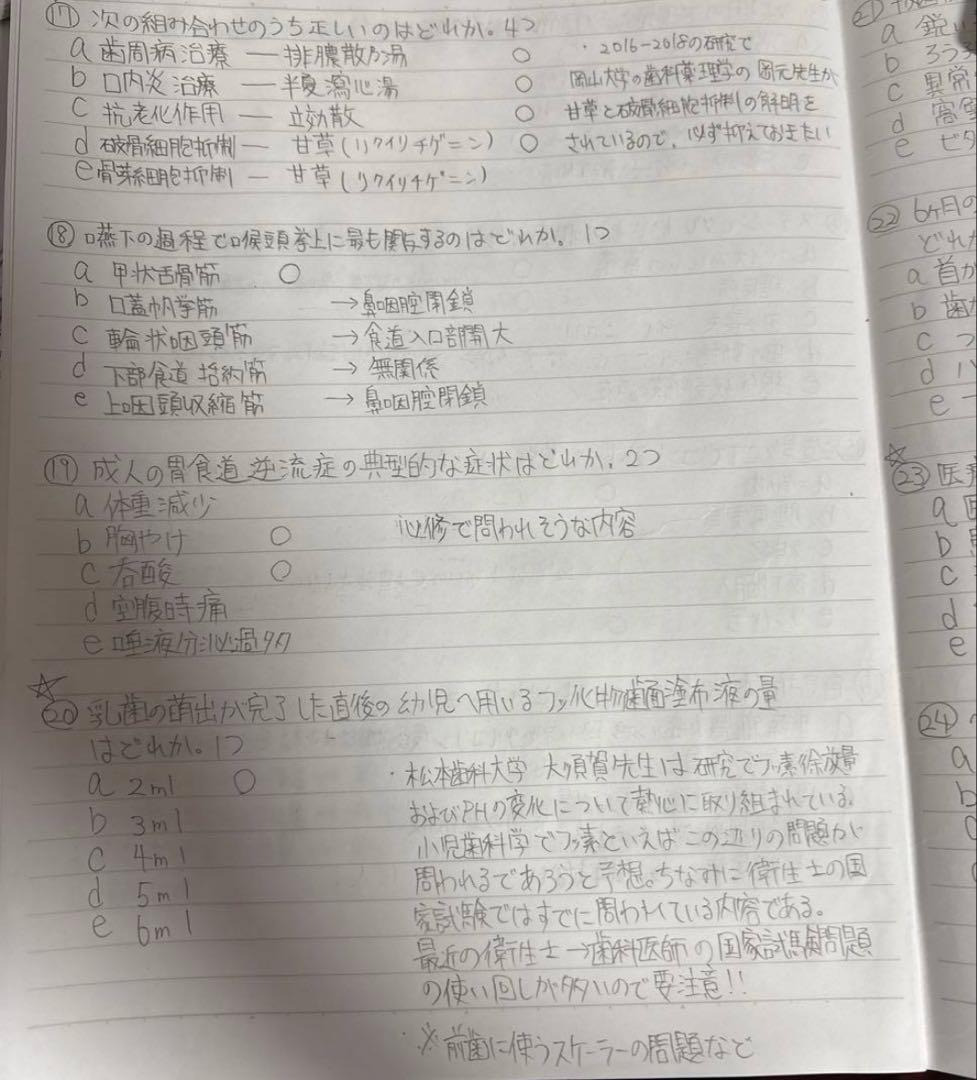 ⑰ 次の組み合わせのうち正しいのはどれか。4つ
a 歯周病治療 ー 排膿散乃湯 ○
b 口内炎治療 ー 半夏瀉心湯 ○
c 抗老化作用 ー 立効散 ○
d 破骨細胞抑制 ー 甘草(リクイリチゲニン) ○
e 骨芽細胞抑制 ー 甘草(リクイリチゲニン)
・2016-2018の研究で
岡山大学の歯科薬理学の岡元先生が
甘草と破骨細胞抑制の解明を
されているので、必ず抑えておきたい
⑱ 嚥下の過程で喉頭挙上に最も関与するのはどれか。1つ
a 甲状舌骨筋 ○
b 口蓋帆挙筋 → 鼻咽腔閉鎖
c 輪状咽頭筋 → 食道入口部開大
d 下部食道括約筋 → 無関係
e 上咽頭収縮筋 → 鼻咽腔閉鎖
⑲ 成人の胃食道逆流症の典型的な症状はどれか。2つ
a 体重減少
b 胸やけ ○ 必修で問われそうな内容
c 呑酸 ○
d 空腹時痛
e 唾液分泌過多
☆
⑳ 乳歯の萌出が完了した直後の幼児へ用いるフッ化物歯面塗布液の量
はどれか。1つ
a 2ml ○
b 3ml
c 4ml
d 5ml
e 6ml
・松本歯科大学 大須賀先生は研究でフッ素徐放量
およびPHの変化について熱心に取り組まれている。
小児歯科学でフッ素といえばこの辺りの問題が
問われるであろうと予想。ちなみに衛生士の国
家試験ではすでに問われている内容である。
最近の衛生士→歯科医師の国家試験問題
の使い回しが多いので要注意!!
※前歯に使うスケーラーの問題など
㉑
a 鋭い
b ろう
c 異常
d 窩
e ビタ
㉒ 6ヶ月の
どれか
a 首が
b 歯
c つ
d ハ
e
☆
㉓ 医
a
b
c
d
e
㉔
a
b